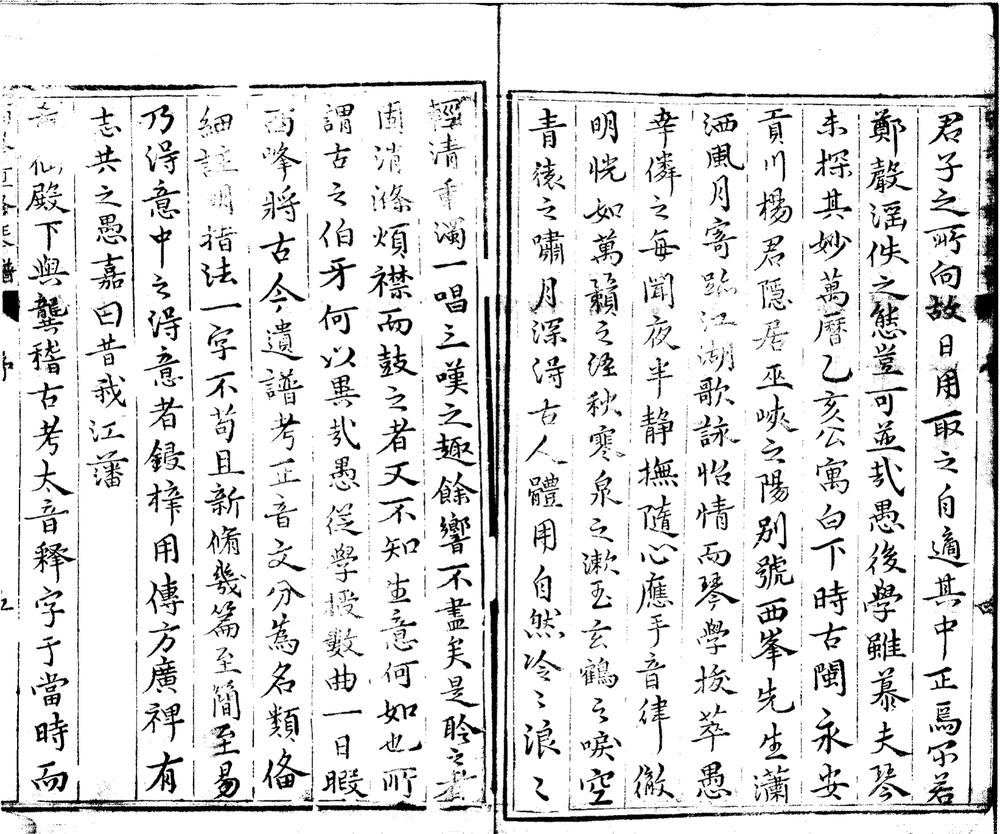 君子之所向故日用取之自適其中正焉不若
鄭聲滛佚之態豈可並哉愚後學雖慕夫琴
未探其妙萬曆乙亥公寓白下時古閩永安
貢川楊君隱居巫峽之陽别號西峯先生瀟
洒風月寄跡江湖歌詠怡情而琴學拔萃愚
幸隣之每聞夜半静撫隨心應手音律徹
明恍如萬籟之語秋寒泉之漱玉玄鶴之唳空
青猿之嘯月深淂古人體用自然冷〻浪〻
輕清重濁一唱三嘆之趣餘響不盡矣是聆之者
固消滌煩襟而鼓之者又不知生意何如也所
謂古之伯牙何以異哉愚從學授數曲一日暇
西峰將古今遺譜考正音文分為名類俻
細註明指法一字不苟且新脩幾篇至簡至易
乃淂意中之淂意者鋟梓用傳方廣禆有
志共之愚嘉曰昔我江藩
仙殿下與龔稽古考太音释字于當時而
譜